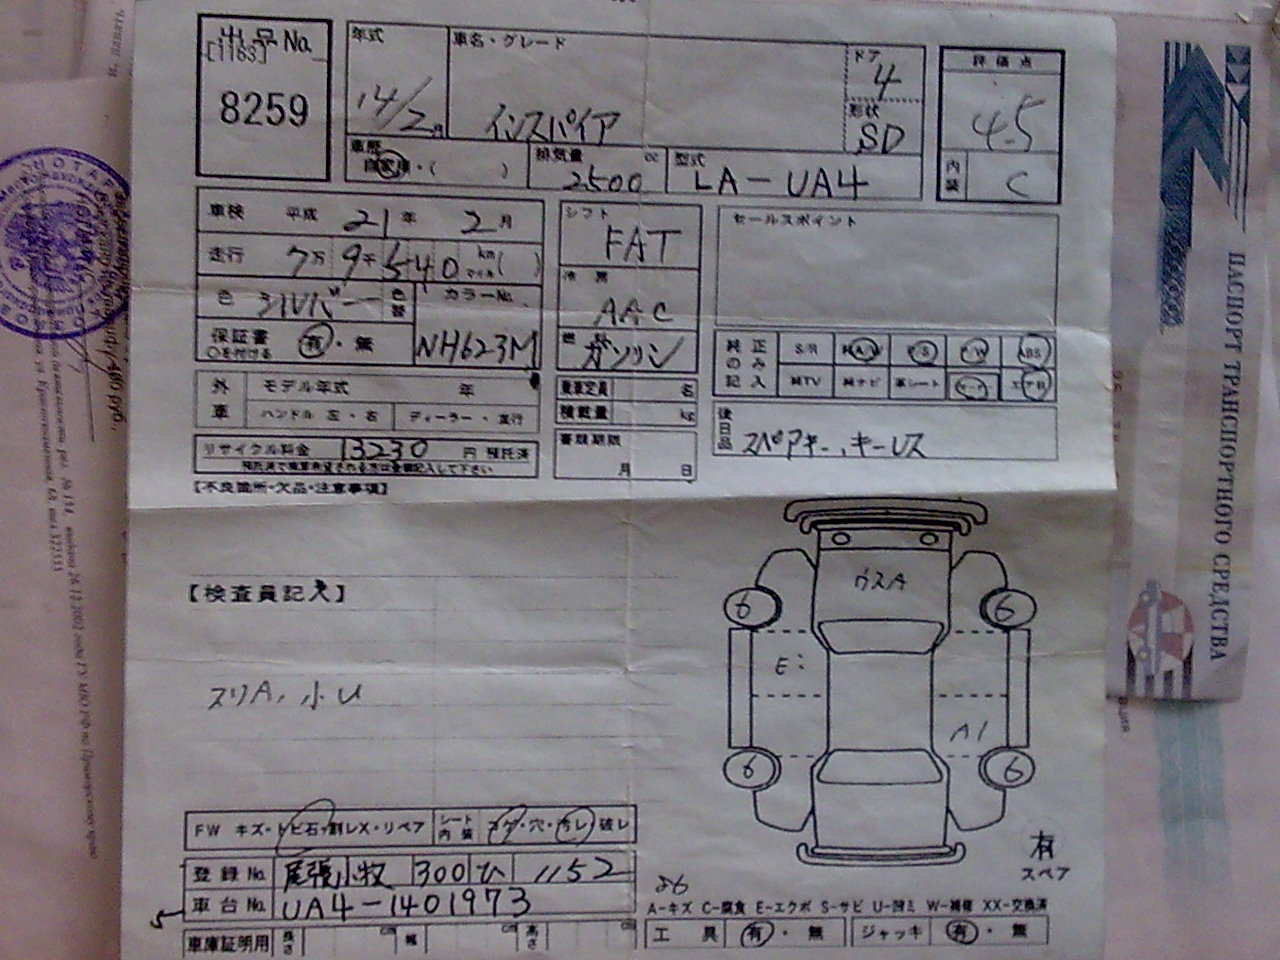 出品No.
[1163]
8259
年式
14/2月
車名・グレード
インスパイア
ドア
4
形状
SD
評価点
4.5
内装
C
車歴
自家用・( )
排気量 cc
2500
型式
LA-UA4
車検 平成 21年 2月
走行 7万9千540 km マイル( )
色 シルバー 色替
カラーNo.
NH623M
保証書 有・無
○を付ける
シフト
FAT
冷房
AAC
燃
ガソリン
セールスポイント
純正のみ記入
S/R 純AW PS PW ABS
純TV 純ナビ 革シート エアB
外車
モデル年式 年
ハンドル 左・右 ディーラー・並行
乗車定員 名
積載量 kg
書類期限
月 日
後日品
スペアキー、キーレス
リサイクル料金 13230 円 預託済
【不良箇所・欠品・注意事項】
【検査員記入】
スリA, 小U
ウスA
6
6
E:
A1
6
6
有
スペア
FW キズ・トビ石・割レX・リペア
シート内装 コゲ・穴・汚レ・破レ
登録No. 尾張小牧 300 ひ 1152
車台No. UA4-1401973
車庫証明用 長さ cm 幅 cm 高さ cm
A-キズ C-腐食 E-エクボ S-サビ U-凹ミ W-補修 XX-交換済
工具 有・無 ジャッキ 有・無
ПАСПОРТ ТРАНСПОРТНОГО СРЕДСТВА